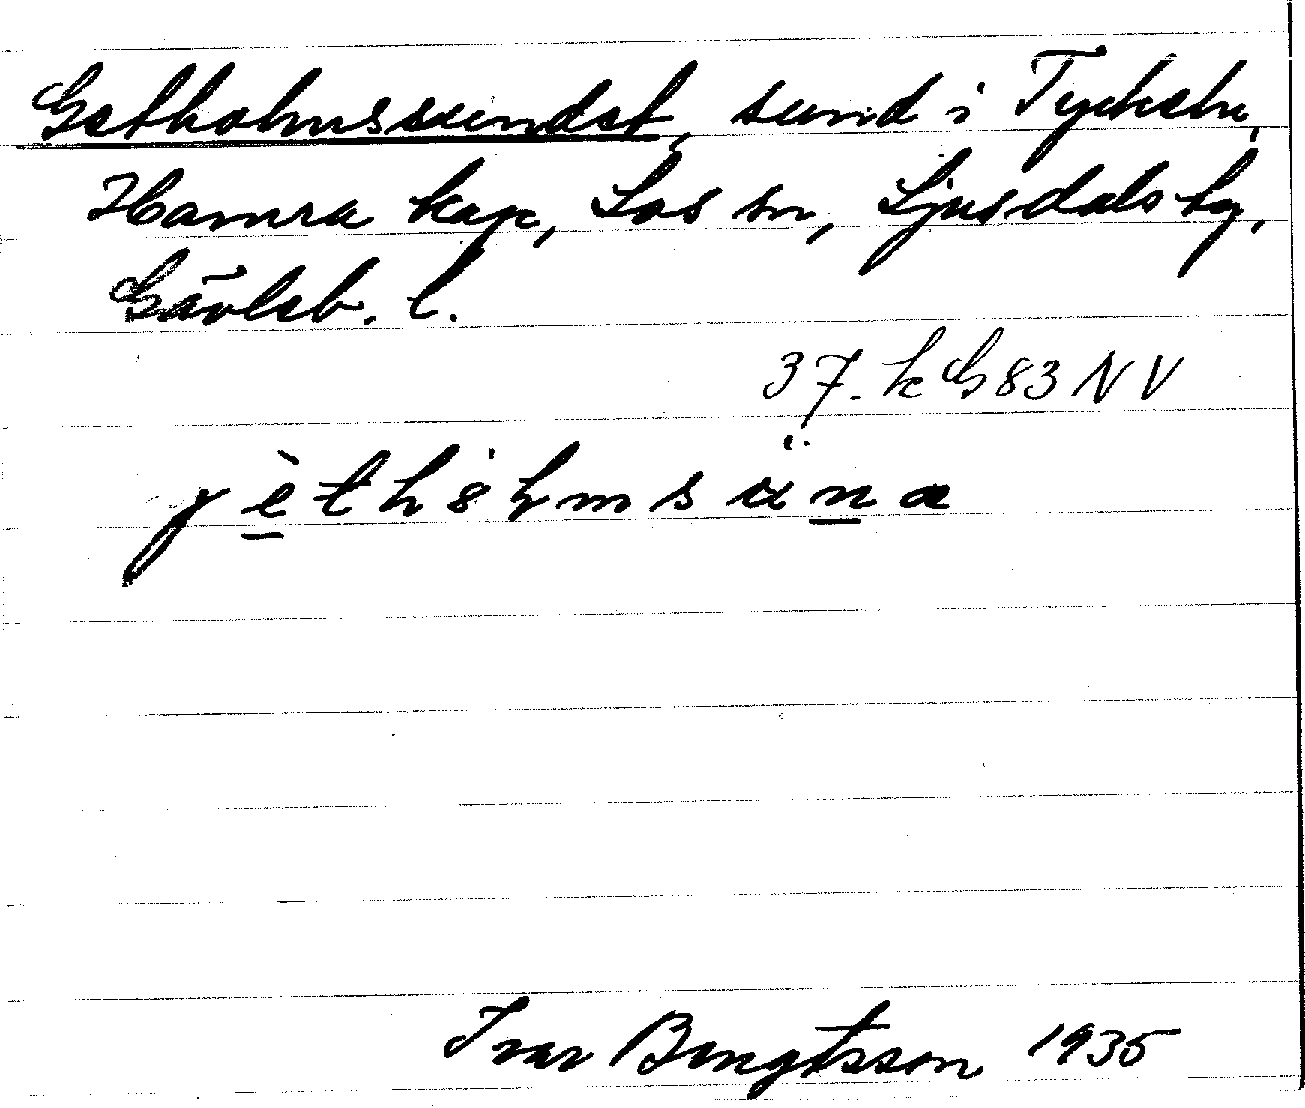 Getholmssundet, sund i Tyckeln,
Hamra kap, Los sn, Ljusdals tg,
Gävleb. l.
37. k G 83 NV
Ivar Bengtsson 1935